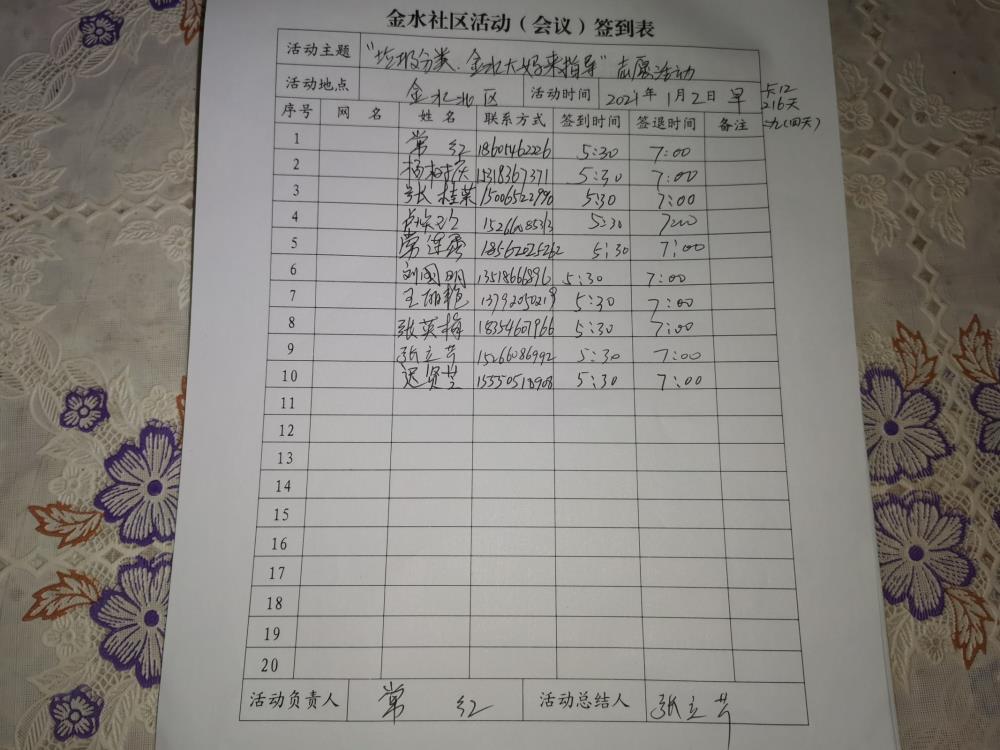 金水社区活动（会议）签到表
活动主题 "垃圾分类.金水大妈来指导"志愿活动
活动地点 金水北区 活动时间 2021年1月2日早
216天
序号 网 名 姓 名 联系方式 签到时间 签退时间 备注 二九(四天)
1 常 红 18605462226 5:30 7:00
2 5:30 7:00
3 张桂荣 5:30 7:00
4 5:30 7:00
5 18562025262 5:30 7:00
6 刘国明 13518666896 5:30 7:00
7 13792050219 5:30 7:00
8 张英梅 18354607966 5:30 7:00
9 张立芳 15266086992 5:30 7:00
10 迟贤芝 15550518908 5:30 7:00
11
12
13
14
15
16
17
18
19
20
活动负责人 常 红 活动总结人 张立芳